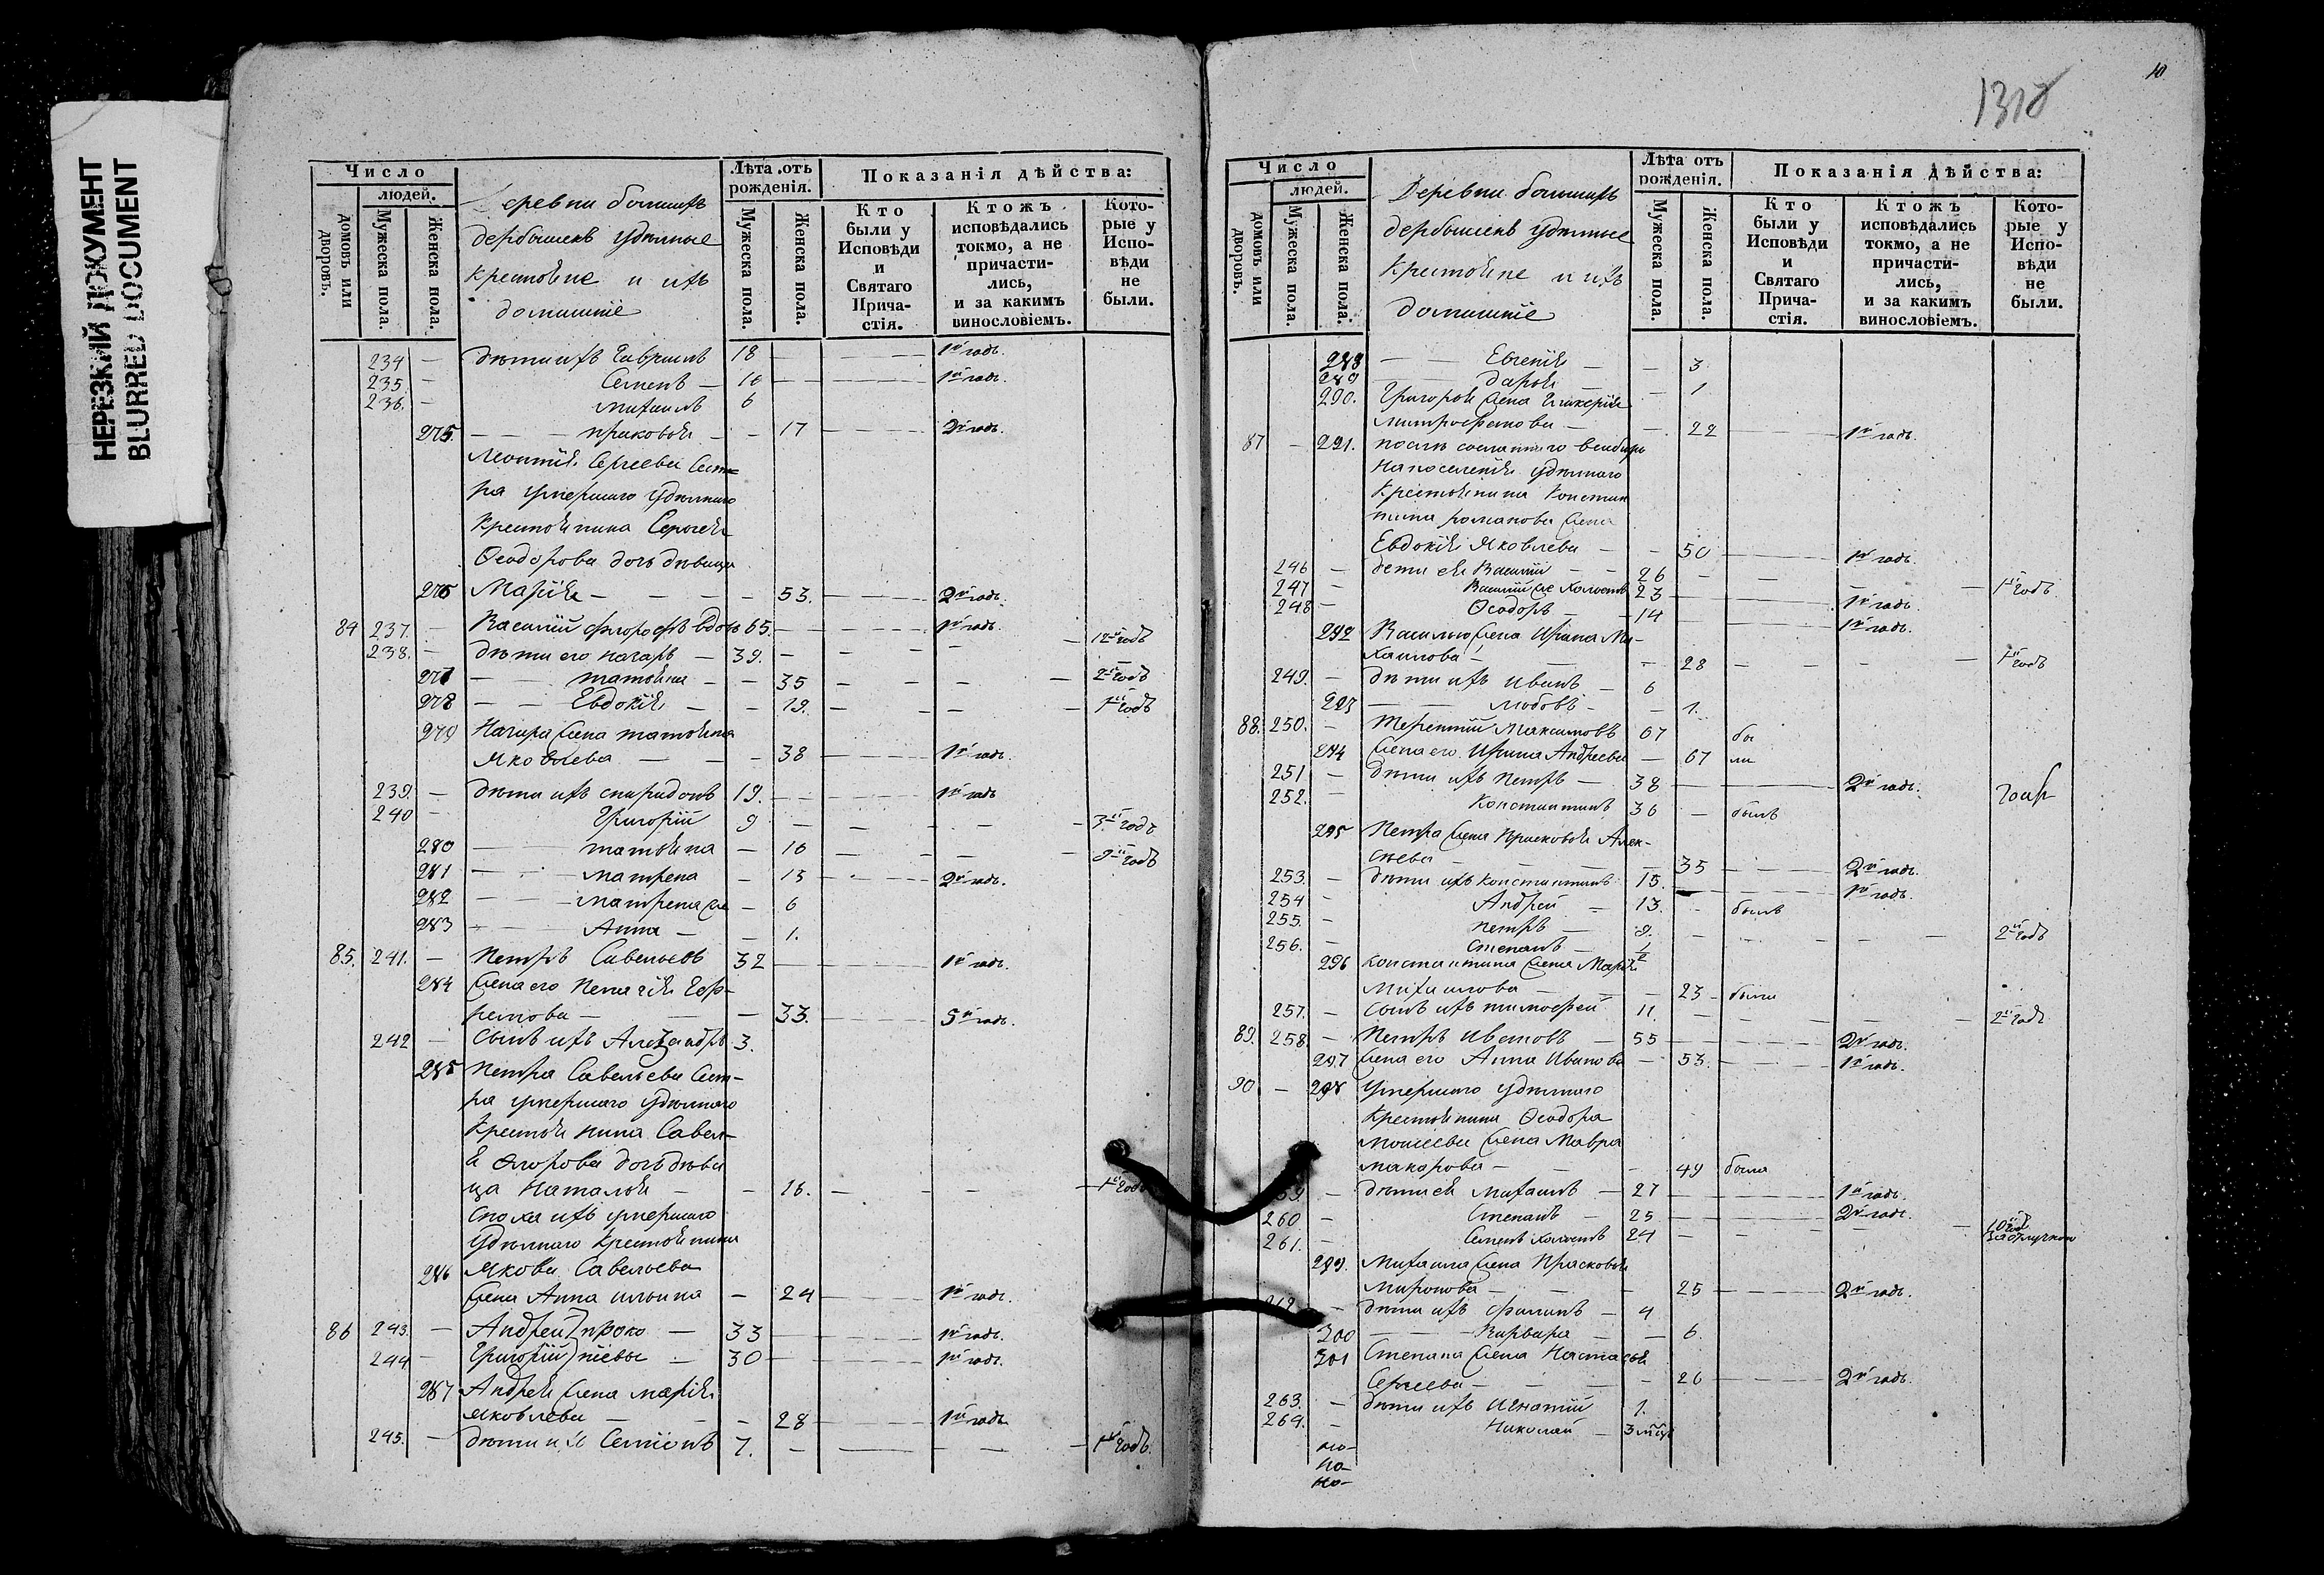 НЕРЕЗКИЙ ДОКУМЕНТ
BLURRED DOCUMENT
Число
людей.
домовъ или дворовъ.
Мужеска пола.
Женска пола.
Деревни большихъ
дербышевъ удѣльные
крестьяне и ихъ
домашніе
Лѣта отъ рожденія.
Мужеска пола.
Женска пола.
Показанія дѣйства:
Кто были у Исповѣди и Святаго Прича-стія.
Ктожъ исповѣдались токмо, а не причасти-лись, и за какимъ винословіемъ.
Кото-рые у Испо-вѣди не были.
234 — дѣти ихъ Гавриилъ 18 — 1й годъ.
235. — Семенъ — 16 — 1й годъ.
236. — Михаилъ 6
275. — Прасковья — 17 — 2й годъ.
Леонтія Сергеева Сест-
ра умершаго удѣльнаго
Крестьянина Сергѣя
Ѳеодорова дочь дѣвица
276 Марія — 53. — 2й годъ.
84 237. — Василий Флоровъ вдовъ 65. — 1й годъ.
238. — дѣти его Назаръ — 39. — 12й годъ
277 — Татьяна — 35 — 2й годъ
278 — Евдокія — 19. — 1й годъ
279 Назара жена Татьяна
Яковлева — 38 — 1й годъ.
239. — дѣти ихъ Спиридонъ 19. — 1й годъ
240 — Григорій 9 — 3й годъ
280 — Татьяна — 16 — 9й годъ
281 — Матрена — 15 — 2й годъ.
282 — Матрена же — 6
283 — Анна — 1.
85. 241. — Петръ Савельевъ 32 — 1й годъ.
284 Жена его Пелагія Еф-
ремова — 33. — 5й годъ.
242 — Сынъ ихъ Александръ 3.
285 Петра Савельева Сест-
ра умершаго удѣльнаго
Крестьянина Савел-
я Флорова дочь дѣви
ца Наталья — 16. — 1й годъ
Сноха ихъ умершаго
Удѣльнаго Крестьянина
286 Якова Савельева
Жена Анна Ильина — 24 — 1й годъ.
86 243. — Андрей Проко — 33 — 1й годъ.
244 — Григорій піевы — 30 — 1й годъ.
287 Андрея жена Марія
Яковлева — 28 — 1й годъ
245. — дѣти ихъ Семіонъ 7. — 1й годъ.
10
1310
Число
людей.
домовъ или дворовъ.
Мужеска пола.
Женска пола.
Деревни большихъ
дербышевъ удѣльные
Крестьяне и ихъ
домашніе
Лѣта отъ рожденія.
Мужеска пола.
Женска пола.
Показанія дѣйства:
Кто были у Исповѣди и Святаго Прича-стія.
Ктожъ исповѣдались токмо, а не причасти-лись, и за какимъ винословіемъ.
Кото-рые у Испо-вѣди не были.
288 — Евгенія — 3
289 — Дарья — 1
290. Григорья жена Гликерія
Митрофанова — 22 — 1й годъ.
87 — 291. послѣ сосланнаго в сибирь
на поселенія удѣльнаго
Крестьянина Констан
тина Романова жена
Евдокія Яковлева — 50 — 1й годъ.
246 — дети ея Василій — 26 — 1й годъ.
247 — Василій же холостъ 23 — 1й годъ.
248 — Ѳеодоръ — 14 — 1й годъ.
292 Василью жена Ирина Ми-
хайлова — 28 — 1й годъ
249. — дѣти ихъ Иванъ — 6
293 — Любовь — 1.
88. 250. — Терентій Максимовъ 67 бы
294 Жена его Ирина Андреева — 67 ли
251 — дѣти ихъ Петръ — 38 — 2й годъ.
252. — Константинъ 36 — былъ
295 Петра жена Прасковья Алек-
сѣева — 35 — 2й годъ.
253. — дѣти ихъ Константинъ 15. — 1й годъ.
254 — Андрей — 13. — былъ
255. — Петръ — 9. — 2й годъ
256. — Степанъ —
296 Константина жена Марія
Михаилова — 23 — была
257. — Сынъ ихъ Тимофей 11. — 2й годъ
89. 258. — Петръ Ивановъ — 55 — 2й годъ.
297 Жена его Анна Иванова — 53. — 1й годъ.
90 — 298 Умершаго удѣльнаго
Крестьянина Ѳеодора
Моисеева жена Мавра
Макарова — 49 была
59. — дѣти ея Михаилъ — 27 — 1й годъ.
260 — Степанъ — 25 — 2й годъ.
261. — Семенъ холостъ 24 — 10й годъ за отлучкою
299. Михаила жена Прасковья
Миронова — 25 — 2й годъ.
262 — дѣти ихъ Филипъ — 4
300 — Варвара — 6.
301 Степана жена Настасья
Сергеева — 26 — 2й годъ.
263. — дѣти ихъ Игнатій 1.
264. — Николай — 3 мѣся